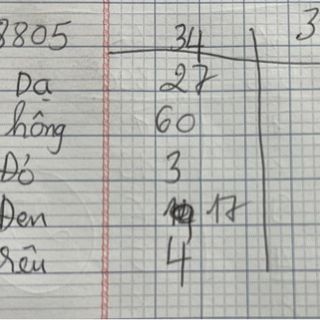 8805 34 3
Dạ 27
hông 60
Đỏ 3
Đen 17
rêu 4